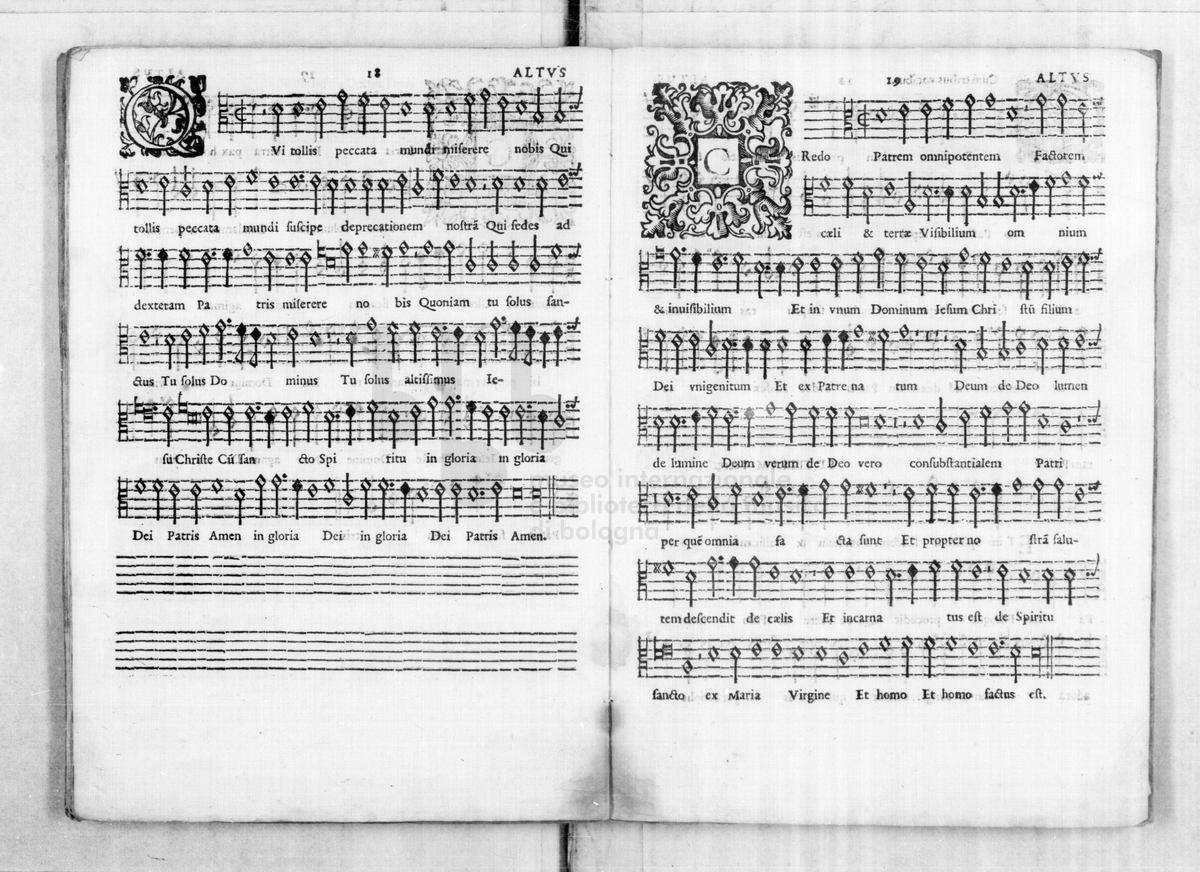 18
ALTVS
QVi tollis peccata mundi miserere nobis Qui
tollis peccata mundi suscipe deprecationem nostrā Qui sedes ad
dexteram Pa tris miserere no bis Quoniam tu solus san-
ctus Tu solus Do minus Tu solus altissimus Ie-
su Christe Cū san cto Spi ritu in gloria in gloria
Dei Patris Amen in gloria Dei in gloria Dei Patris Amen.
19
ALTVS
CRedo Patrem omnipotentem Factorem
cæli & terræ Visibilium om nium
& inuisibilium Et in vnum Dominum Iesum Chri stū filium
Dei vnigenitum Et ex Patre na tum Deum de Deo lumen
de lumine Deum verum de Deo vero consubstantialem Patri
per quē omnia fa cta sunt Et propter no strā salu-
tem descendit de cælis Et incarna tus est de Spiritu
sancto ex Maria Virgine Et homo Et homo factus est.
museo internazionale
e biblioteca della musica
di bologna